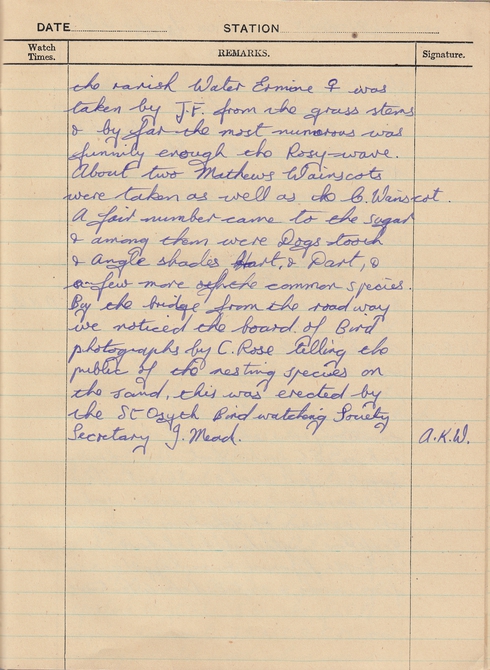 DATE STATION
Watch Times. REMARKS. Signature.
the rarish Water Ermine ♀ was
taken by J.F. from the grass stems
& by far the most numerous was
funnily enough the Rosy-wave.
About two Mathews Wainscots
were taken as well as do C. Wainscot.
A fair number came to the sugar
& among them were Dogs tooth
& Angle shades Hart, & Dart, &
a few more of the common species.
By the bridge from the roadway
we noticed the board of Bird
photographs by C. Rose telling the
public of the nesting species on
the sand, this was erected by
the St Osyth Bird watching Society
Secretary J. Mead. A.K.W.